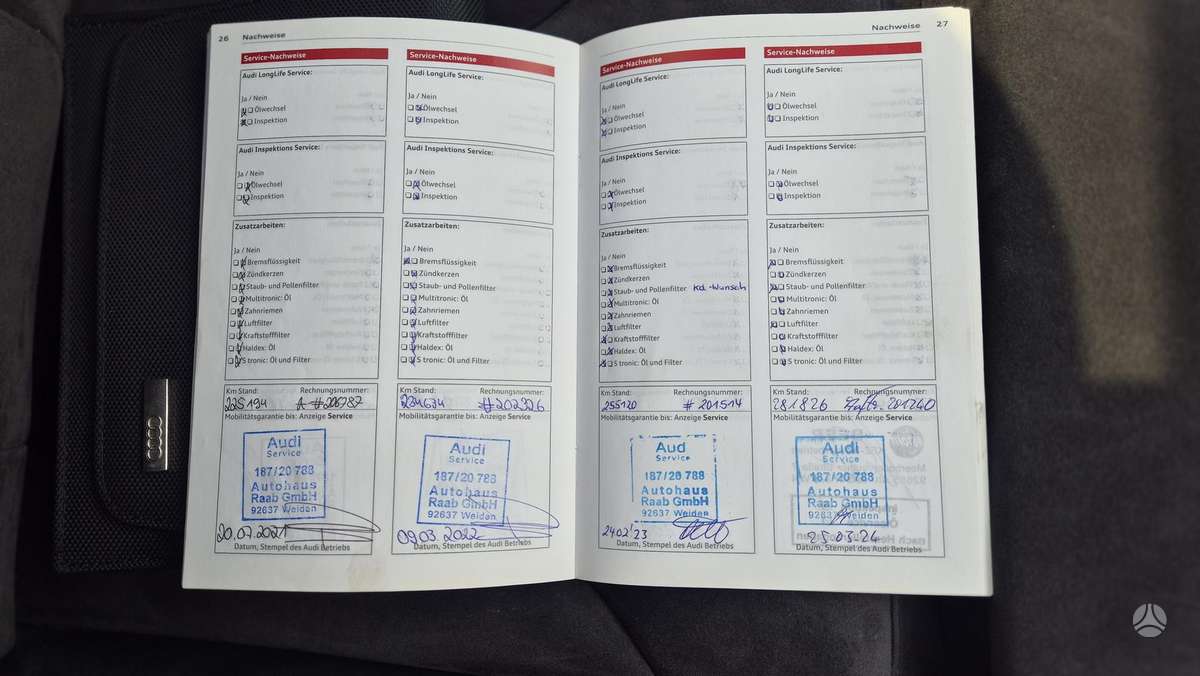 26 Nachweise
Service-Nachweise
Audi LongLife Service:
Ja / Nein
Ölwechsel
Inspektion
Audi Inspektions Service:
Ja / Nein
Ölwechsel
Inspektion
Zusatzarbeiten:
Ja / Nein
Bremsflüssigkeit
Zündkerzen
Staub- und Pollenfilter
Multitronic: Öl
Zahnriemen
Luftfilter
Kraftstofffilter
Haldex: Öl
S tronic: Öl und Filter
Km Stand: Rechnungsnummer:
225194
Mobilitätsgarantie bis: Anzeige Service
Audi
Service
187/20 788
Autohaus
Raab GmbH
92637 Weiden
20.07.2021
Datum, Stempel des Audi Betriebs
Service-Nachweise
Audi LongLife Service:
Ja / Nein
Ölwechsel
Inspektion
Audi Inspektions Service:
Ja / Nein
Ölwechsel
Inspektion
Zusatzarbeiten:
Ja / Nein
Bremsflüssigkeit
Zündkerzen
Staub- und Pollenfilter
Multitronic: Öl
Zahnriemen
Luftfilter
Kraftstofffilter
Haldex: Öl
S tronic: Öl und Filter
Km Stand: Rechnungsnummer:
234634 #202326
Mobilitätsgarantie bis: Anzeige Service
Audi
Service
187/20 788
Autohaus
Raab GmbH
92637 Weiden
09.03.2022
Datum, Stempel des Audi Betriebs
Nachweise 27
Service-Nachweise
Audi LongLife Service:
Ja / Nein
Ölwechsel
Inspektion
Audi Inspektions Service:
Ja / Nein
Ölwechsel
Inspektion
Zusatzarbeiten:
Ja / Nein
Bremsflüssigkeit
Zündkerzen
Staub- und Pollenfilter Kd.-Wunsch
Multitronic: Öl
Zahnriemen
Luftfilter
Kraftstofffilter
Haldex: Öl
S tronic: Öl und Filter
Km Stand: Rechnungsnummer:
255120 # 201514
Mobilitätsgarantie bis: Anzeige Service
Audi
Service
187/20 788
Autohaus
Raab GmbH
92637 Weiden
24.02.'23
Datum, Stempel des Audi Betriebs
Service-Nachweise
Audi LongLife Service:
Ja / Nein
Ölwechsel
Inspektion
Audi Inspektions Service:
Ja / Nein
Ölwechsel
Inspektion
Zusatzarbeiten:
Ja / Nein
Bremsflüssigkeit
Zündkerzen
Staub- und Pollenfilter
Multitronic: Öl
Zahnriemen
Luftfilter
Kraftstofffilter
Haldex: Öl
S tronic: Öl und Filter
Km Stand: Rechnungsnummer:
281826 201240
Mobilitätsgarantie bis: Anzeige Service
Audi
Service
187/20 788
Autohaus
Raab GmbH
92637 Weiden
25.03.24
Datum, Stempel des Audi Betriebs